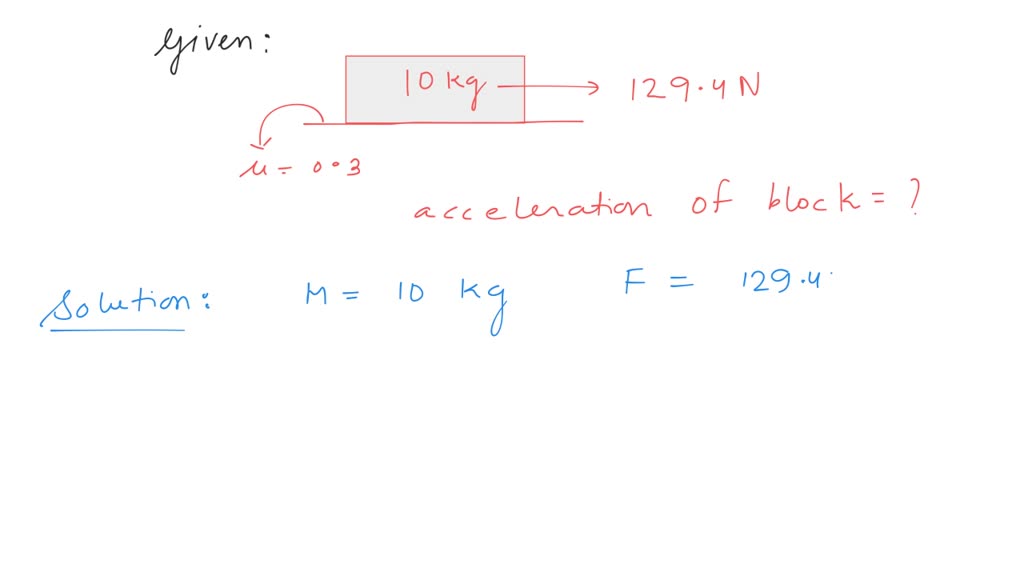 Given:
10 kg
129.4 N
μ = 0.3
acceleration of block = ?
Solution: M = 10 kg F = 129.4